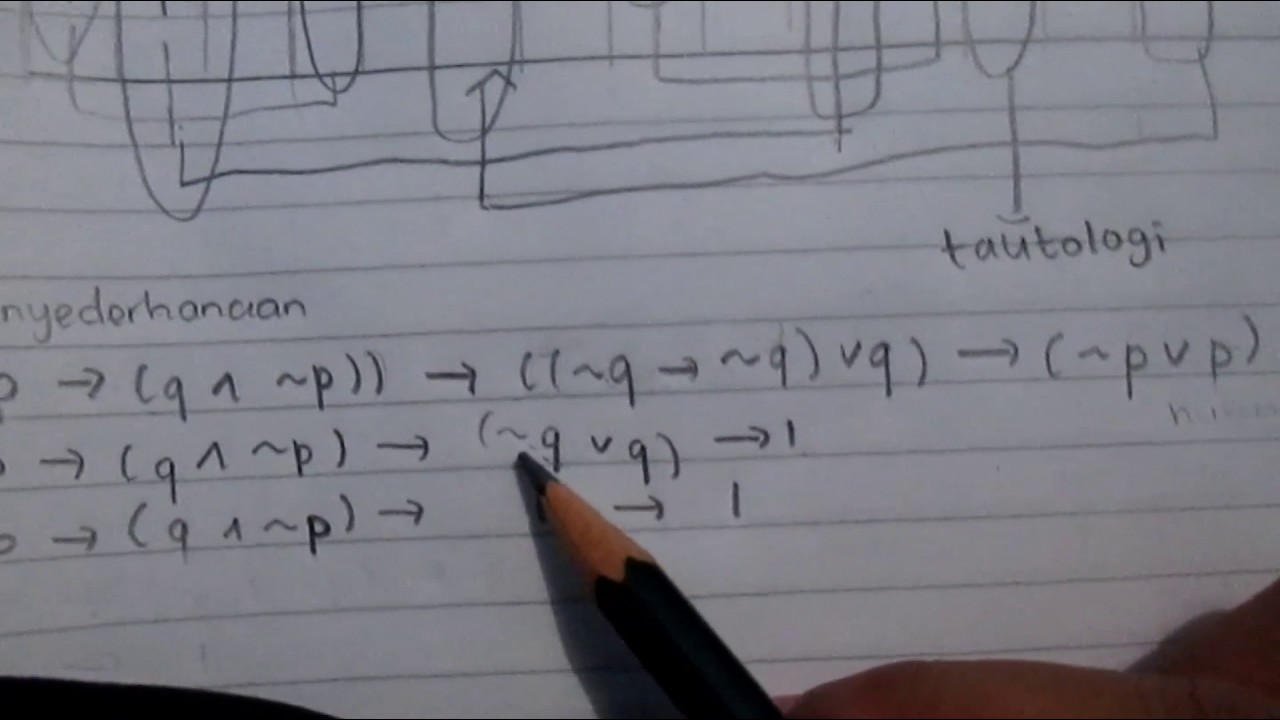 tautologi
nyederhanaan
p → (q ∧ ~p)) → ((~q → ~q) ∨ q) → (~p ∨ p)
→ (q ∧ ~p) → (~q ∨ q) → 1
→ (q ∧ ~p) → 1 → 1